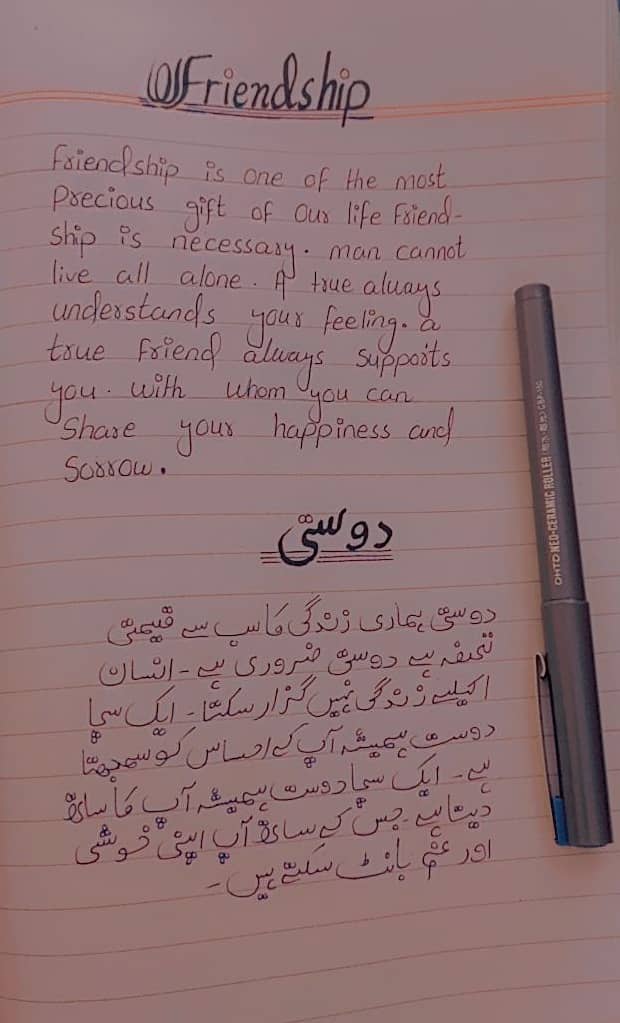 Friendship
Friendship is one of the most
precious gift of our life Friend-
ship is necessary. man cannot
live all alone. A true always
understands your feeling. a
true Friend always supports
you. with whom you can
Share your happiness and
Sorrow.
دوستی
دوستی ہماری زندگی کا سب سے قیمتی
تحفہ ہے دوستی ضروری ہے ۔ انسان
اکیلے زندگی نہیں گزار سکتا ۔ ایک سچا
دوست ہمیشہ آپ کے احساس کو سمجھتا
ہے ۔ ایک سچا دوست ہمیشہ آپ کا ساتھ
دیتا ہے ۔ جس کے ساتھ آپ اپنی خوشی
اور غم بانٹ سکتے ہیں ۔
OHTO NEO-CERAMIC ROLLER